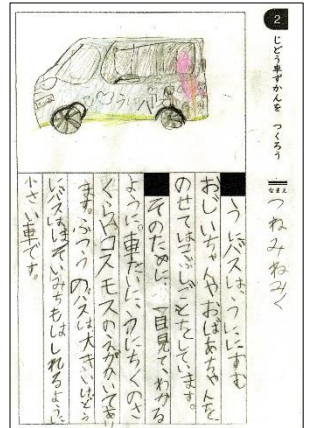 2
じどう車ずかんを つくろう
なまえ
つねみねみく
うにバス
うにバスは、うににすむ
おじいちゃんや、おばあちゃんを
のせてはこぶしごとをしています。
そのために、一目見て、わかる
ように、車たいに、うにちくのさ
くらやコスモスのえがかいてあり
ます。ふつうのバスは大きいけどう
にバスはほそいみちもはしれるように
小さい車です。